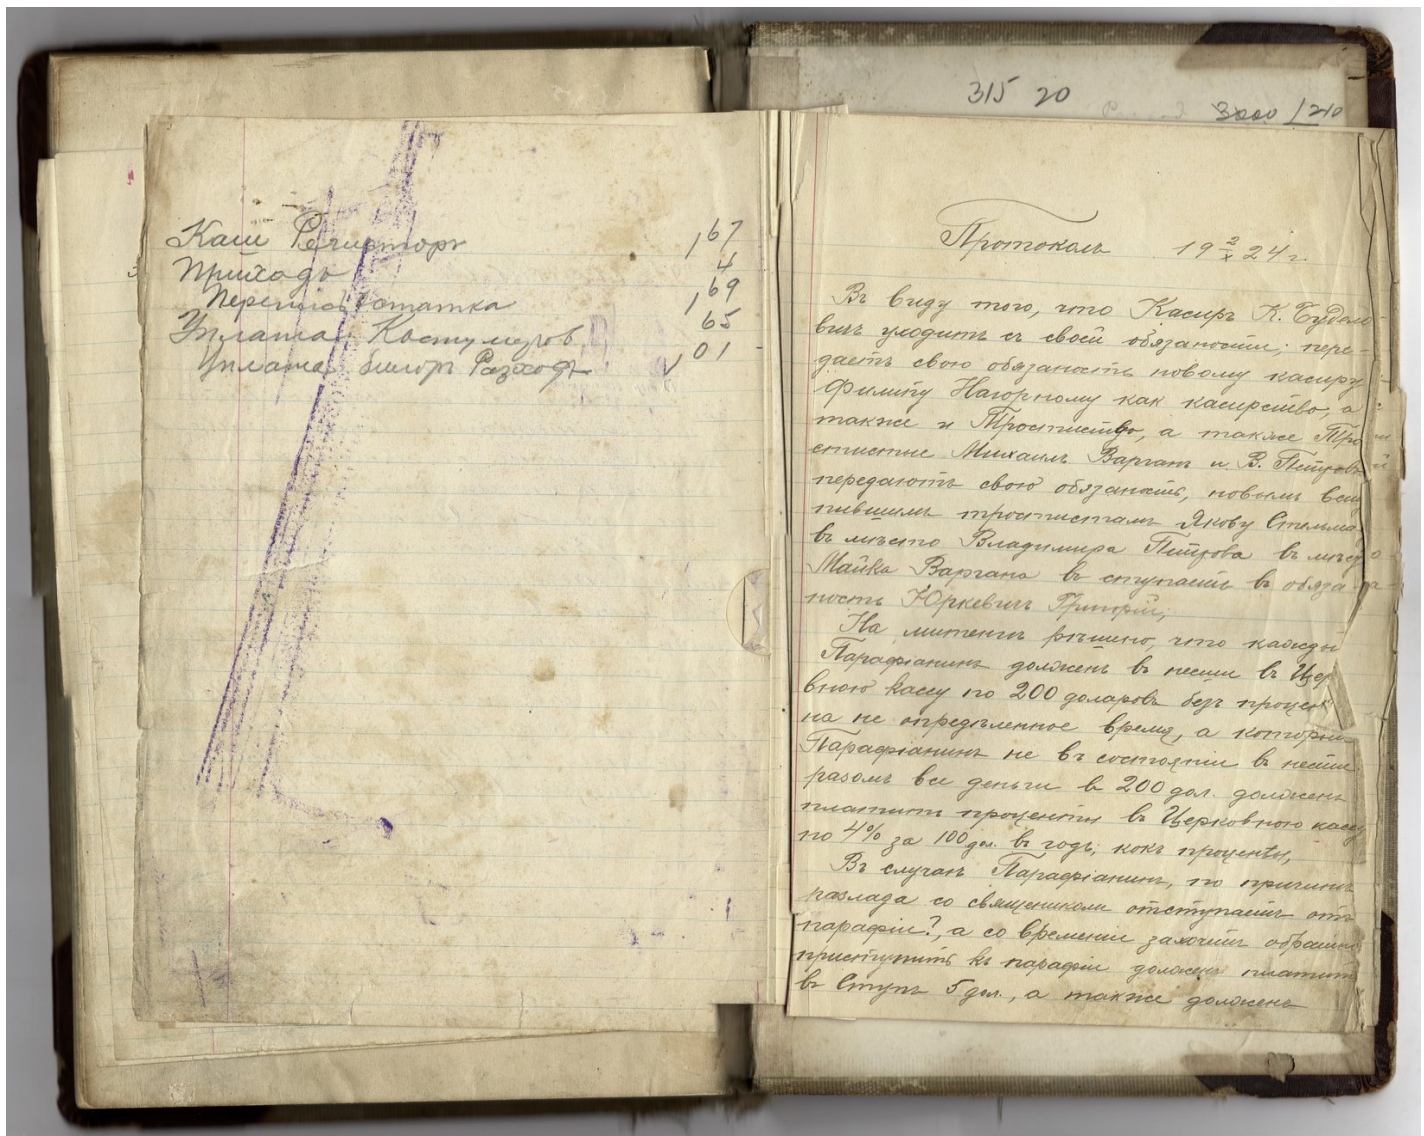 Каш Регистор 167
Приходъ 4
Перепись остатка 169
Уплата Костумеров 65
Уплата Разходъ 101
315 20
3000 / 210
Протоколъ 19 2/X 24 г.
Въ виду того, что Касиръ К. Будило-
вичъ уходитъ съ своей обязаности; пере-
даетъ свою обязаность новому касиру
Филипу Нагорному как касирство, а
также и Тростиство, а также Тро
стистие Михаилъ Варганъ и В. Петровъ
передаютъ свою обязаность, новымъ всту
пившимъ тростистамъ Якову Стельма
въ мѣсто Владимира Петрова въ мѣсто
Майка Варгана въ ступаетъ въ обяза-
ность Юркевичъ Григорій,
На митенги рѣшино, что каждый
Парафіанинъ должень въ нести въ Цер
вною кассу по 200 доларовъ безъ процен
на не опредѣленное время, а который
Парафіанинъ не въ состояніи въ нести
разомъ все деньги в 200 дол. должень
платить проценты въ Церковною кассу
по 4% за 100 дол. въ годъ, какъ проценты,
Въ случаѣ Парафіанинъ, по причинѣ
разлада со священиком отступаетъ отъ
парафіи?, а со временiе захочитъ обратно
приступить къ парафіи должень платить
въ Ступъ 5 дол., а также должень